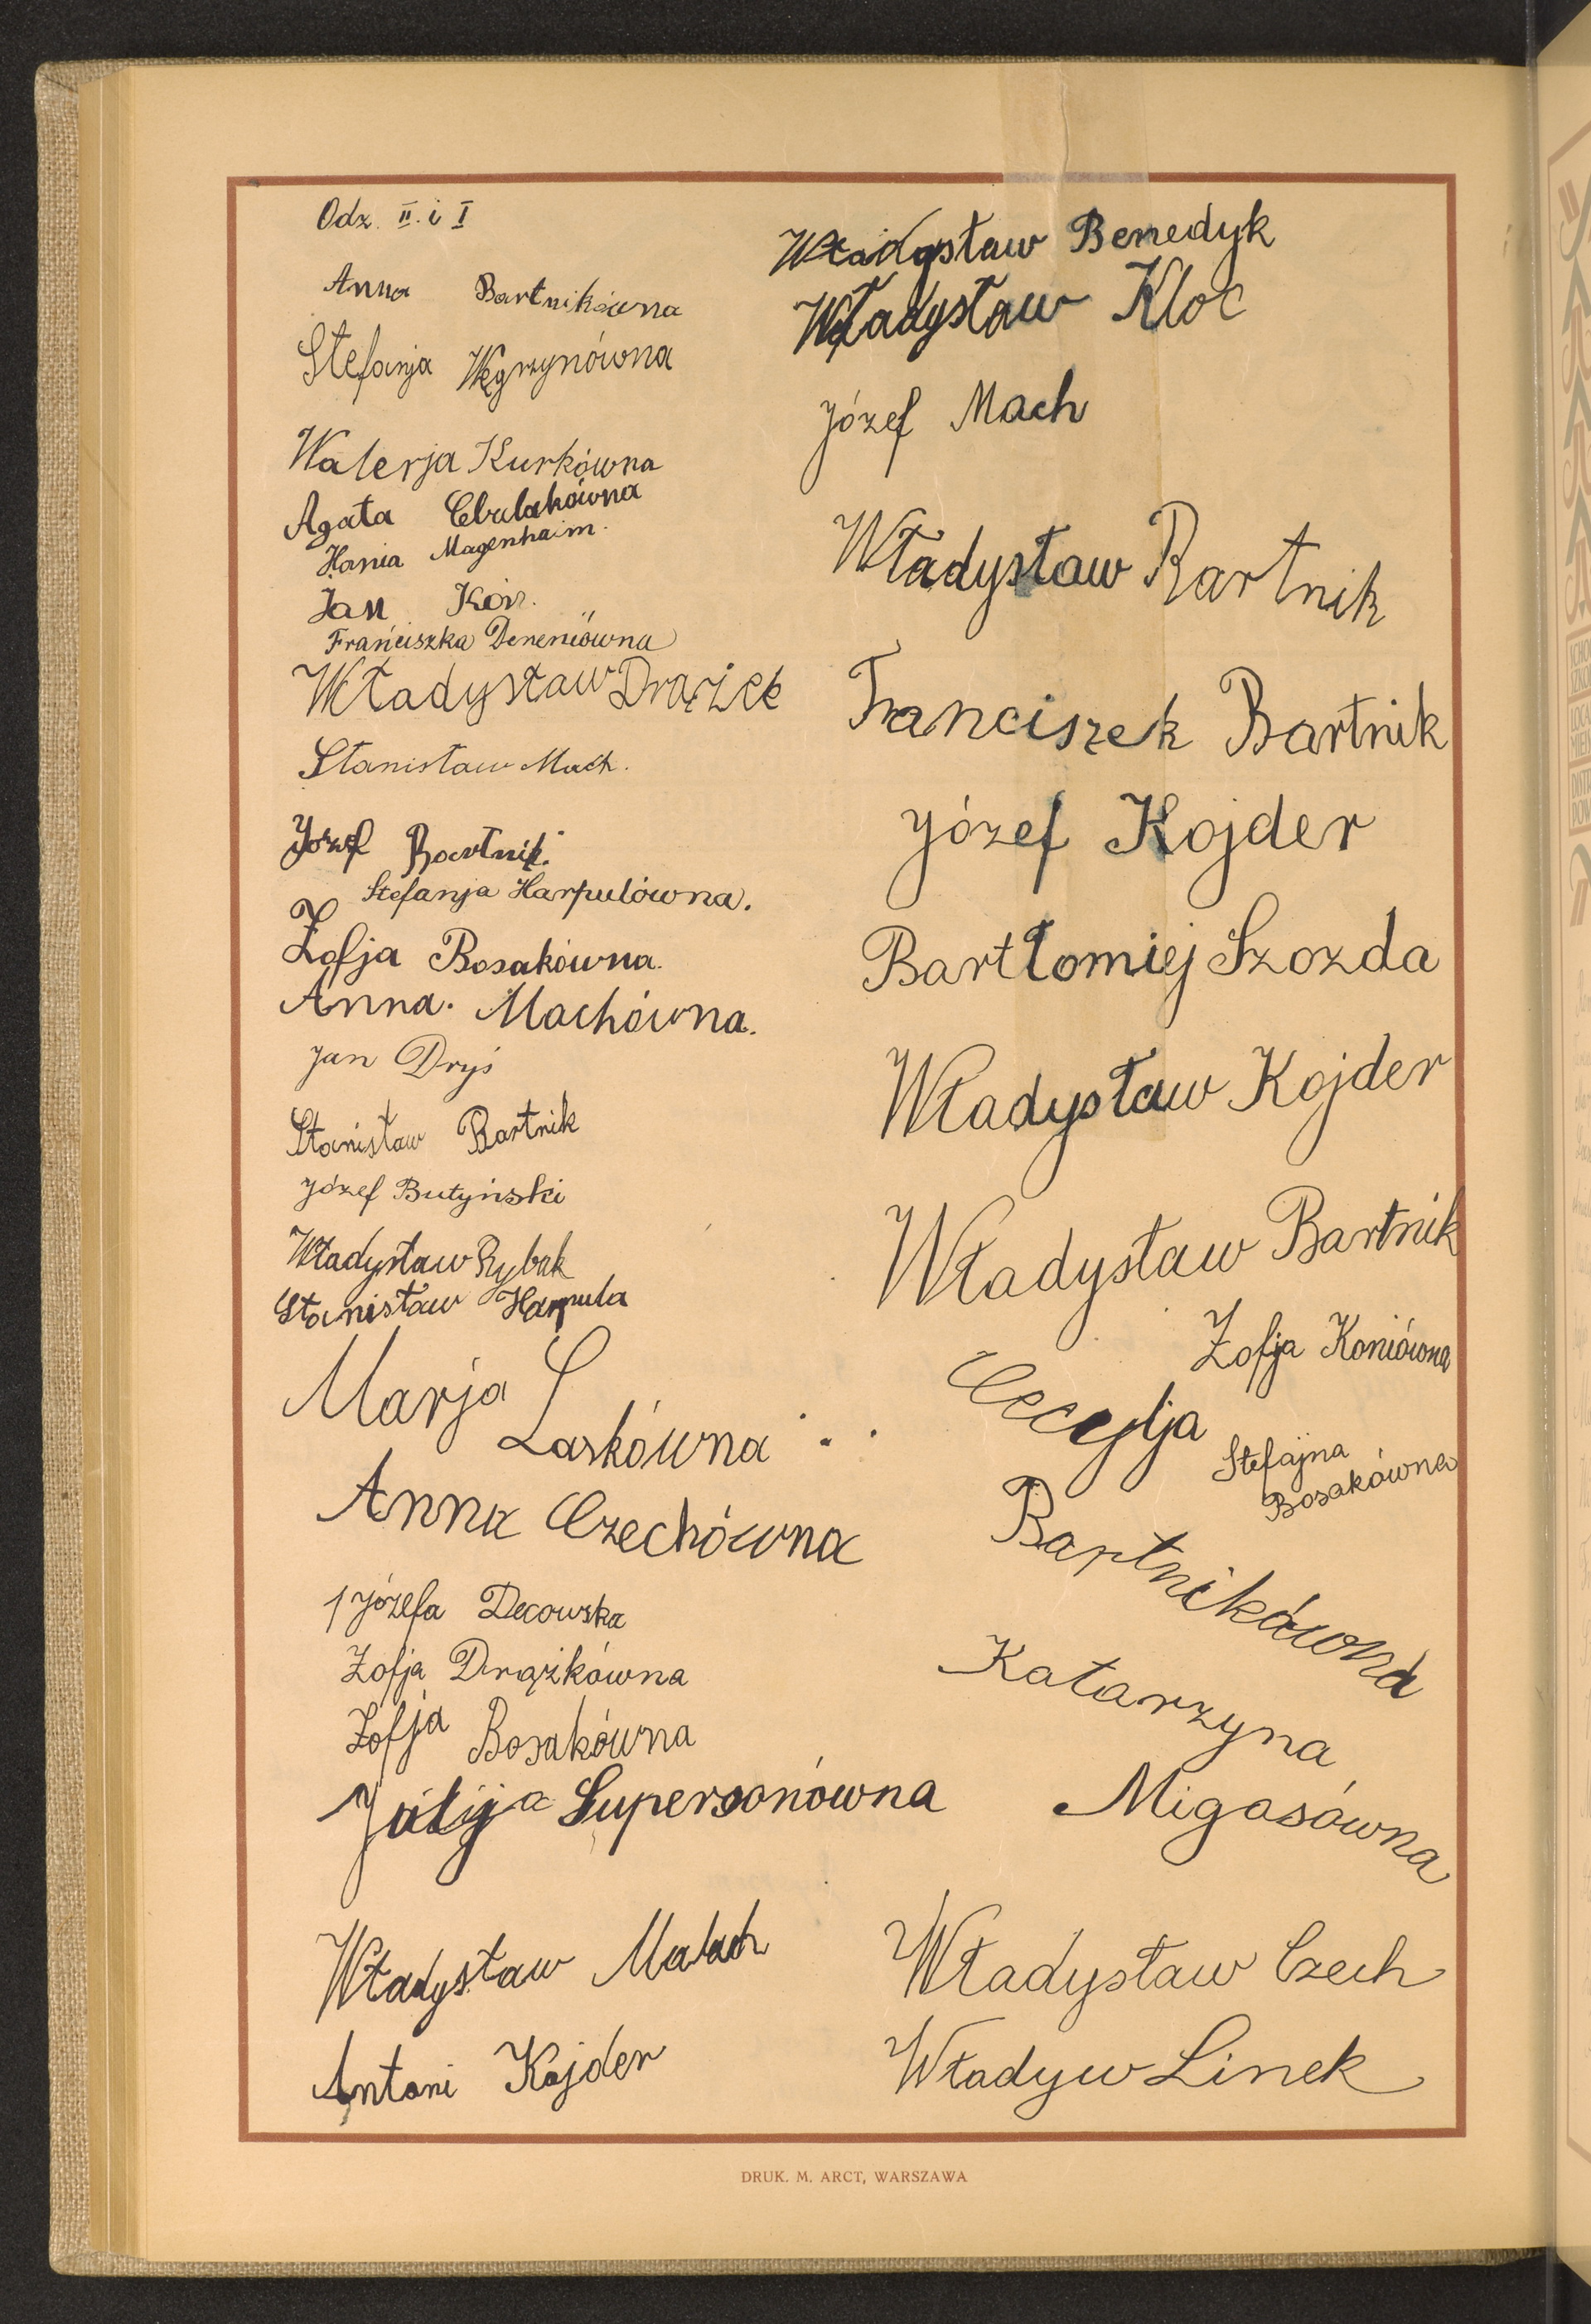 Odz. II. i I
Anna Bartnikówna
Stefanja Węgrzynówna
Walerja Kurkówna
Agata
Hania Magenhaim.
Jan Koń.
Franciszka
Władysław Drążek
Stanisław Mach.
Józef Bartnik.
Stefanja Harpulówna.
Zofja Bosakówna.
Anna. Machówna.
Jan Dryś
Stanisław Bartnik
Józef Butyński
Władysław Rybak
Stanisław Harpula
Marja Laskówna
Anna Czechówna
Józefa Decowska
Zofja Drążkówna
Zofja Bosakówna
Supersonówna
Władysław Małach
Antoni Kojder
Władysław Benedyk
Władysław Kloc
Józef Mach
Władysław Bartnik
Franciszek Bartnik
Józef Kojder
Bartłomiej Szozda
Władysław Kojder
Władysław Bartnik
Zofja Koniówna
Cecylja
Bartnikówna
Stefajna
Bosakówna
Katarzyna
Migasówna
Władysław Czech
Władyw Linek
DRUK. M. ARCT, WARSZAWA